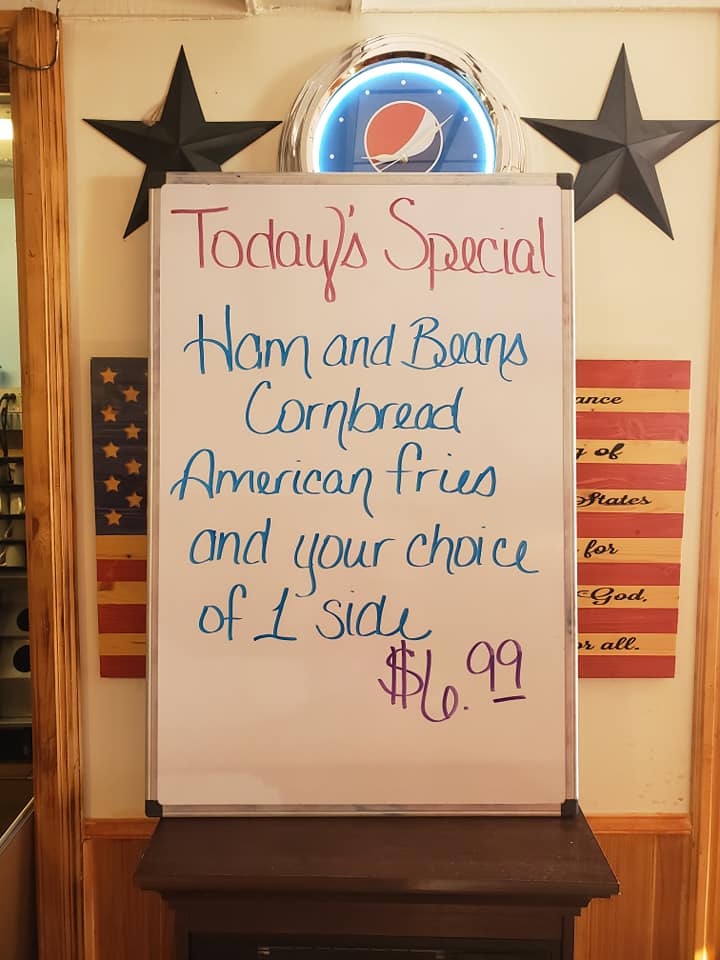 Today's Special
Ham and Beans
Cornbread
American fries
and your choice
of 1 side
$6.99
ance
of
States
for
God,
all.